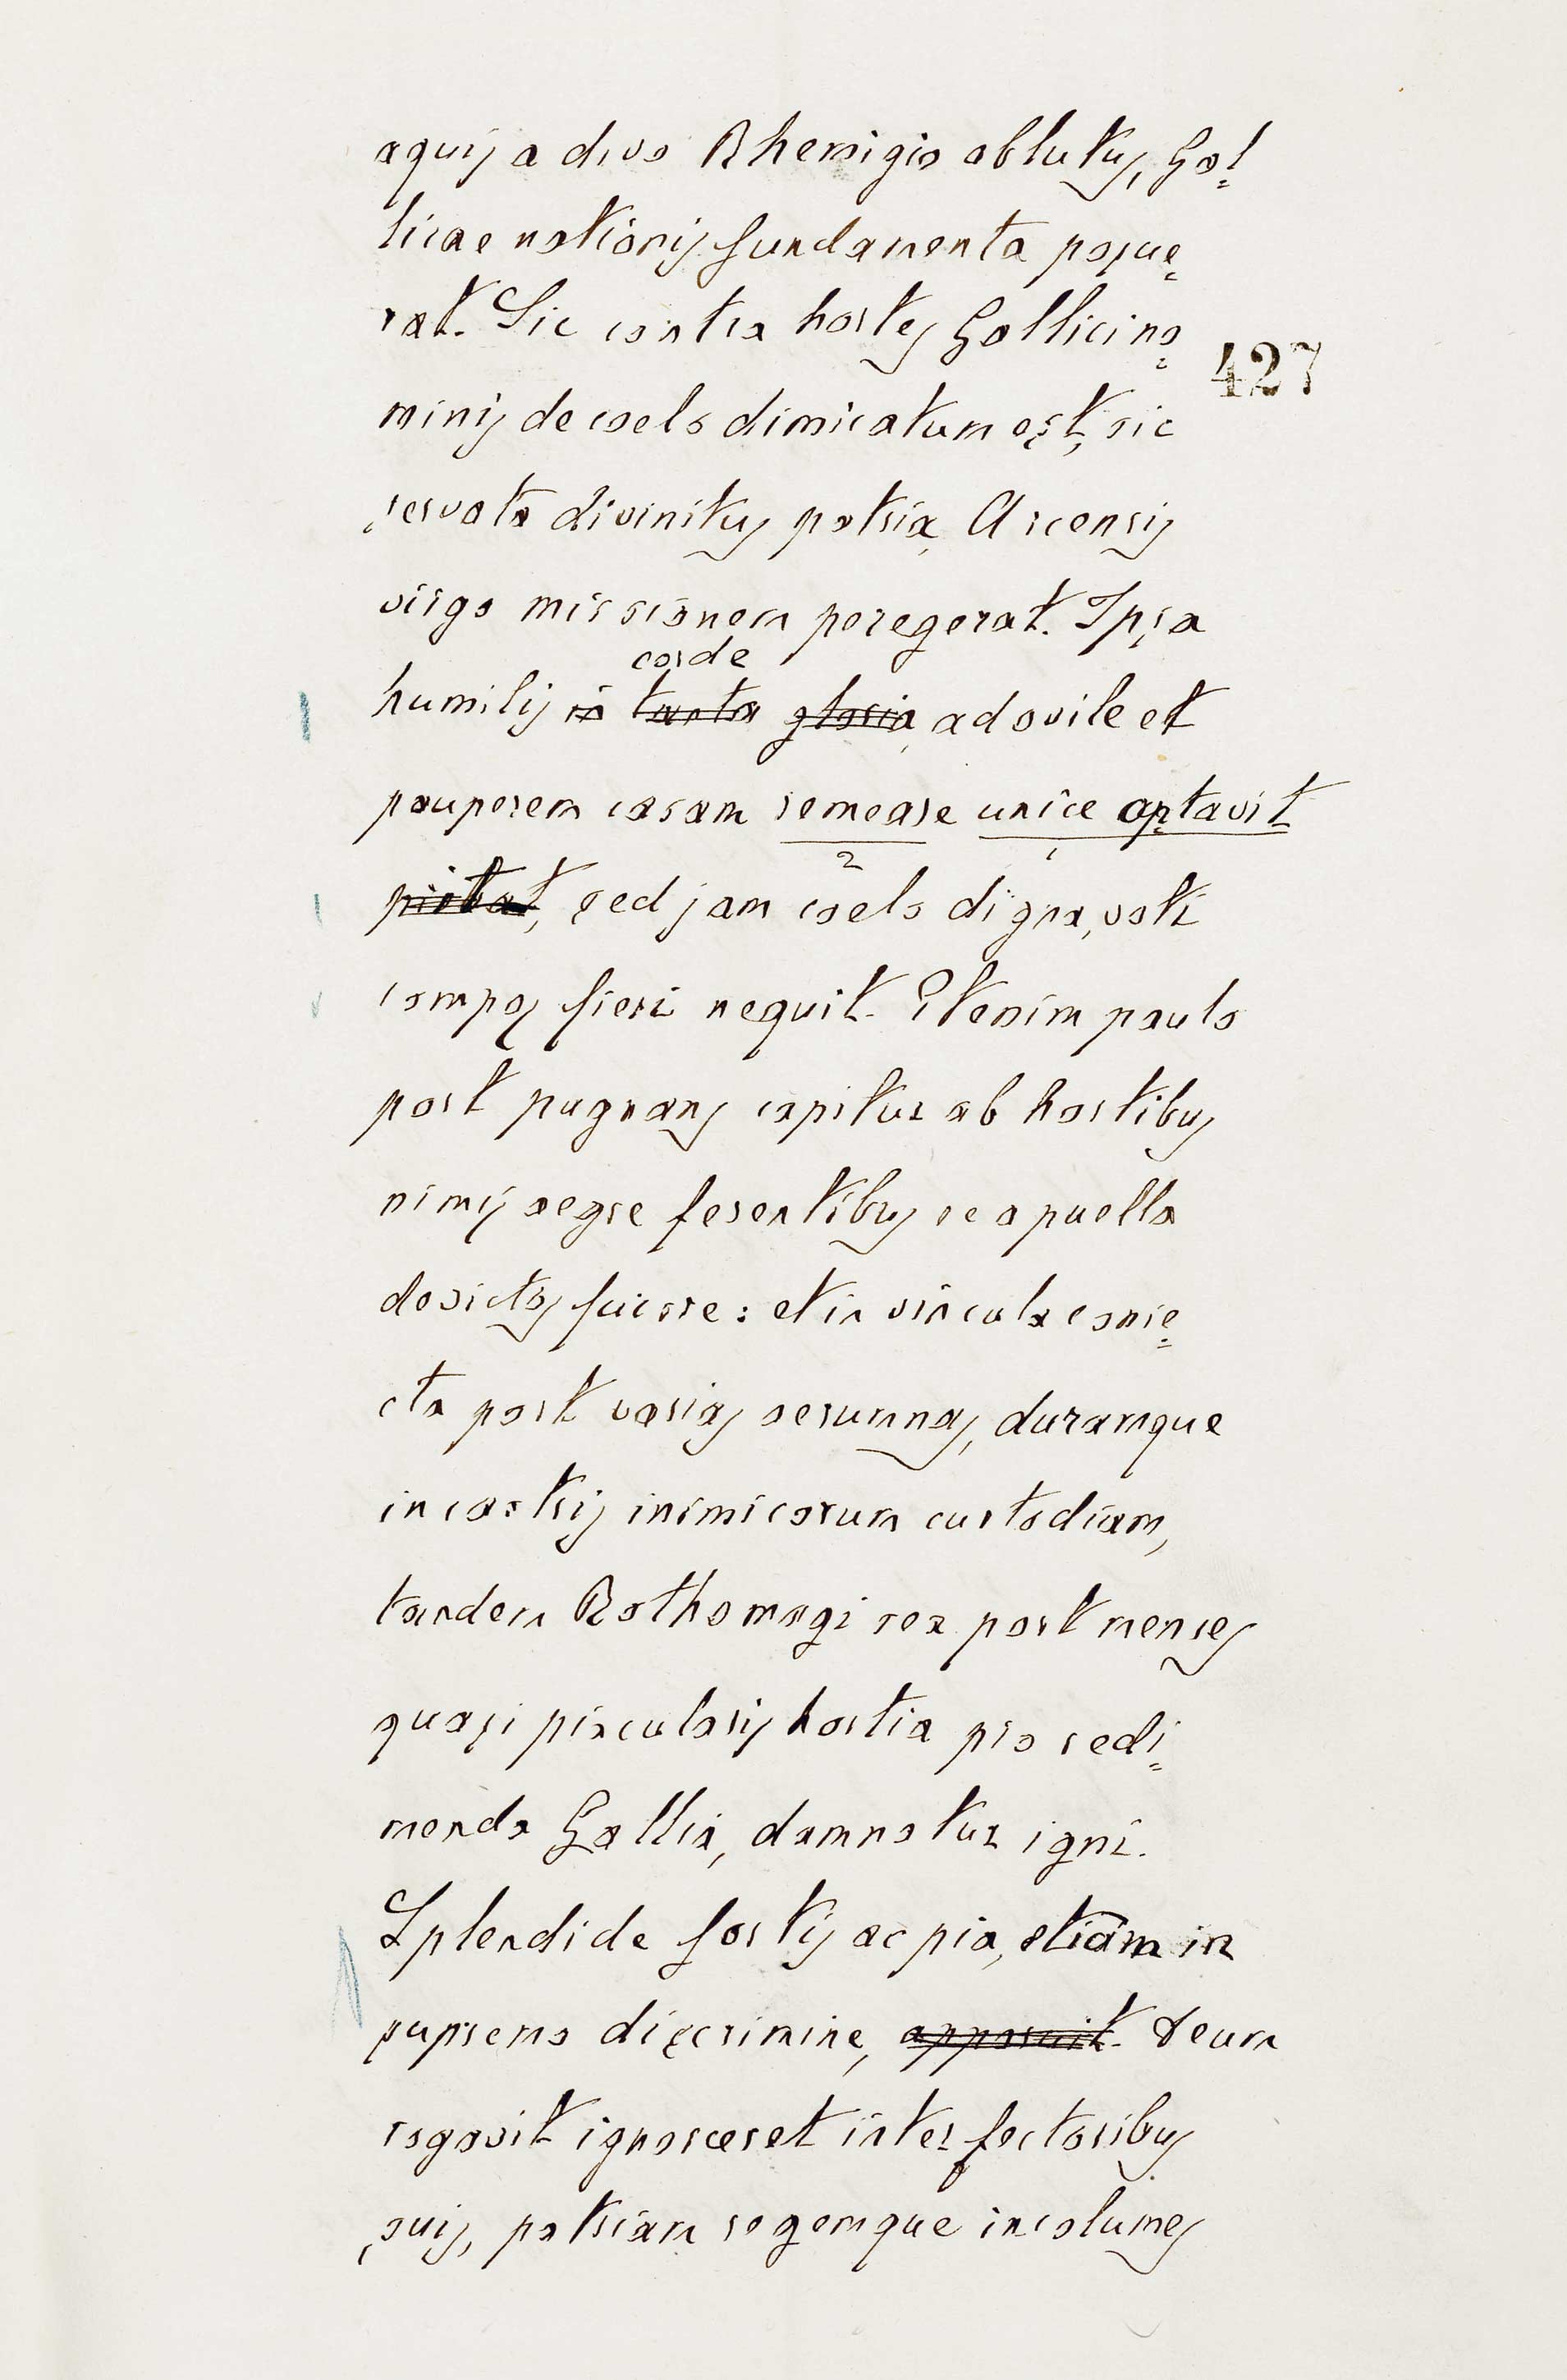 aquis a divo Rhemigio ablutus, Gal=
licae nationis fundamenta posue=
rat. Sic contra hostes Gallici no=
427
minis de coelo dimicatum est, sic
servata divinitus patria, Arcensis
virgo missionem peregerat. Ipsa
corde
humilis in tanta gloria, ad ovile et
pauperem casam remeare unice optavit
2 1
, sed jam coelo digna, voti
compos fieri nequit. Etenim paulo
post pugnans capitur ab hostibus
nimis aegre ferentibus se a puella
devictos fuisse: et in vincula conie=
cta post varias aerumnas, duramque
in castris inimicorum custodiam,
tandem Rothomagi sex post menses
quasi piacularis hostia pro redi=
menda Gallia, damnatur igni.
Splendide fortis ac pia, etiam in
supremo discrimine, apposuit. Deum
rogavit ignosceret interfectoribus
suis, patriam regemque incolumes